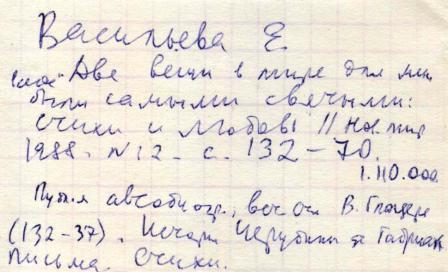 Васильева Е
"Две вещи в мире для мен
были самыми святыми:
стихи и любовь! // Нов. мир
1988. N12. с. 132–70.
1.110.000.
Публ. автобиогр., вст. ст. В. Глоцера
(132–37). Истор. Черубины де Габриак
Письма. Стихи.